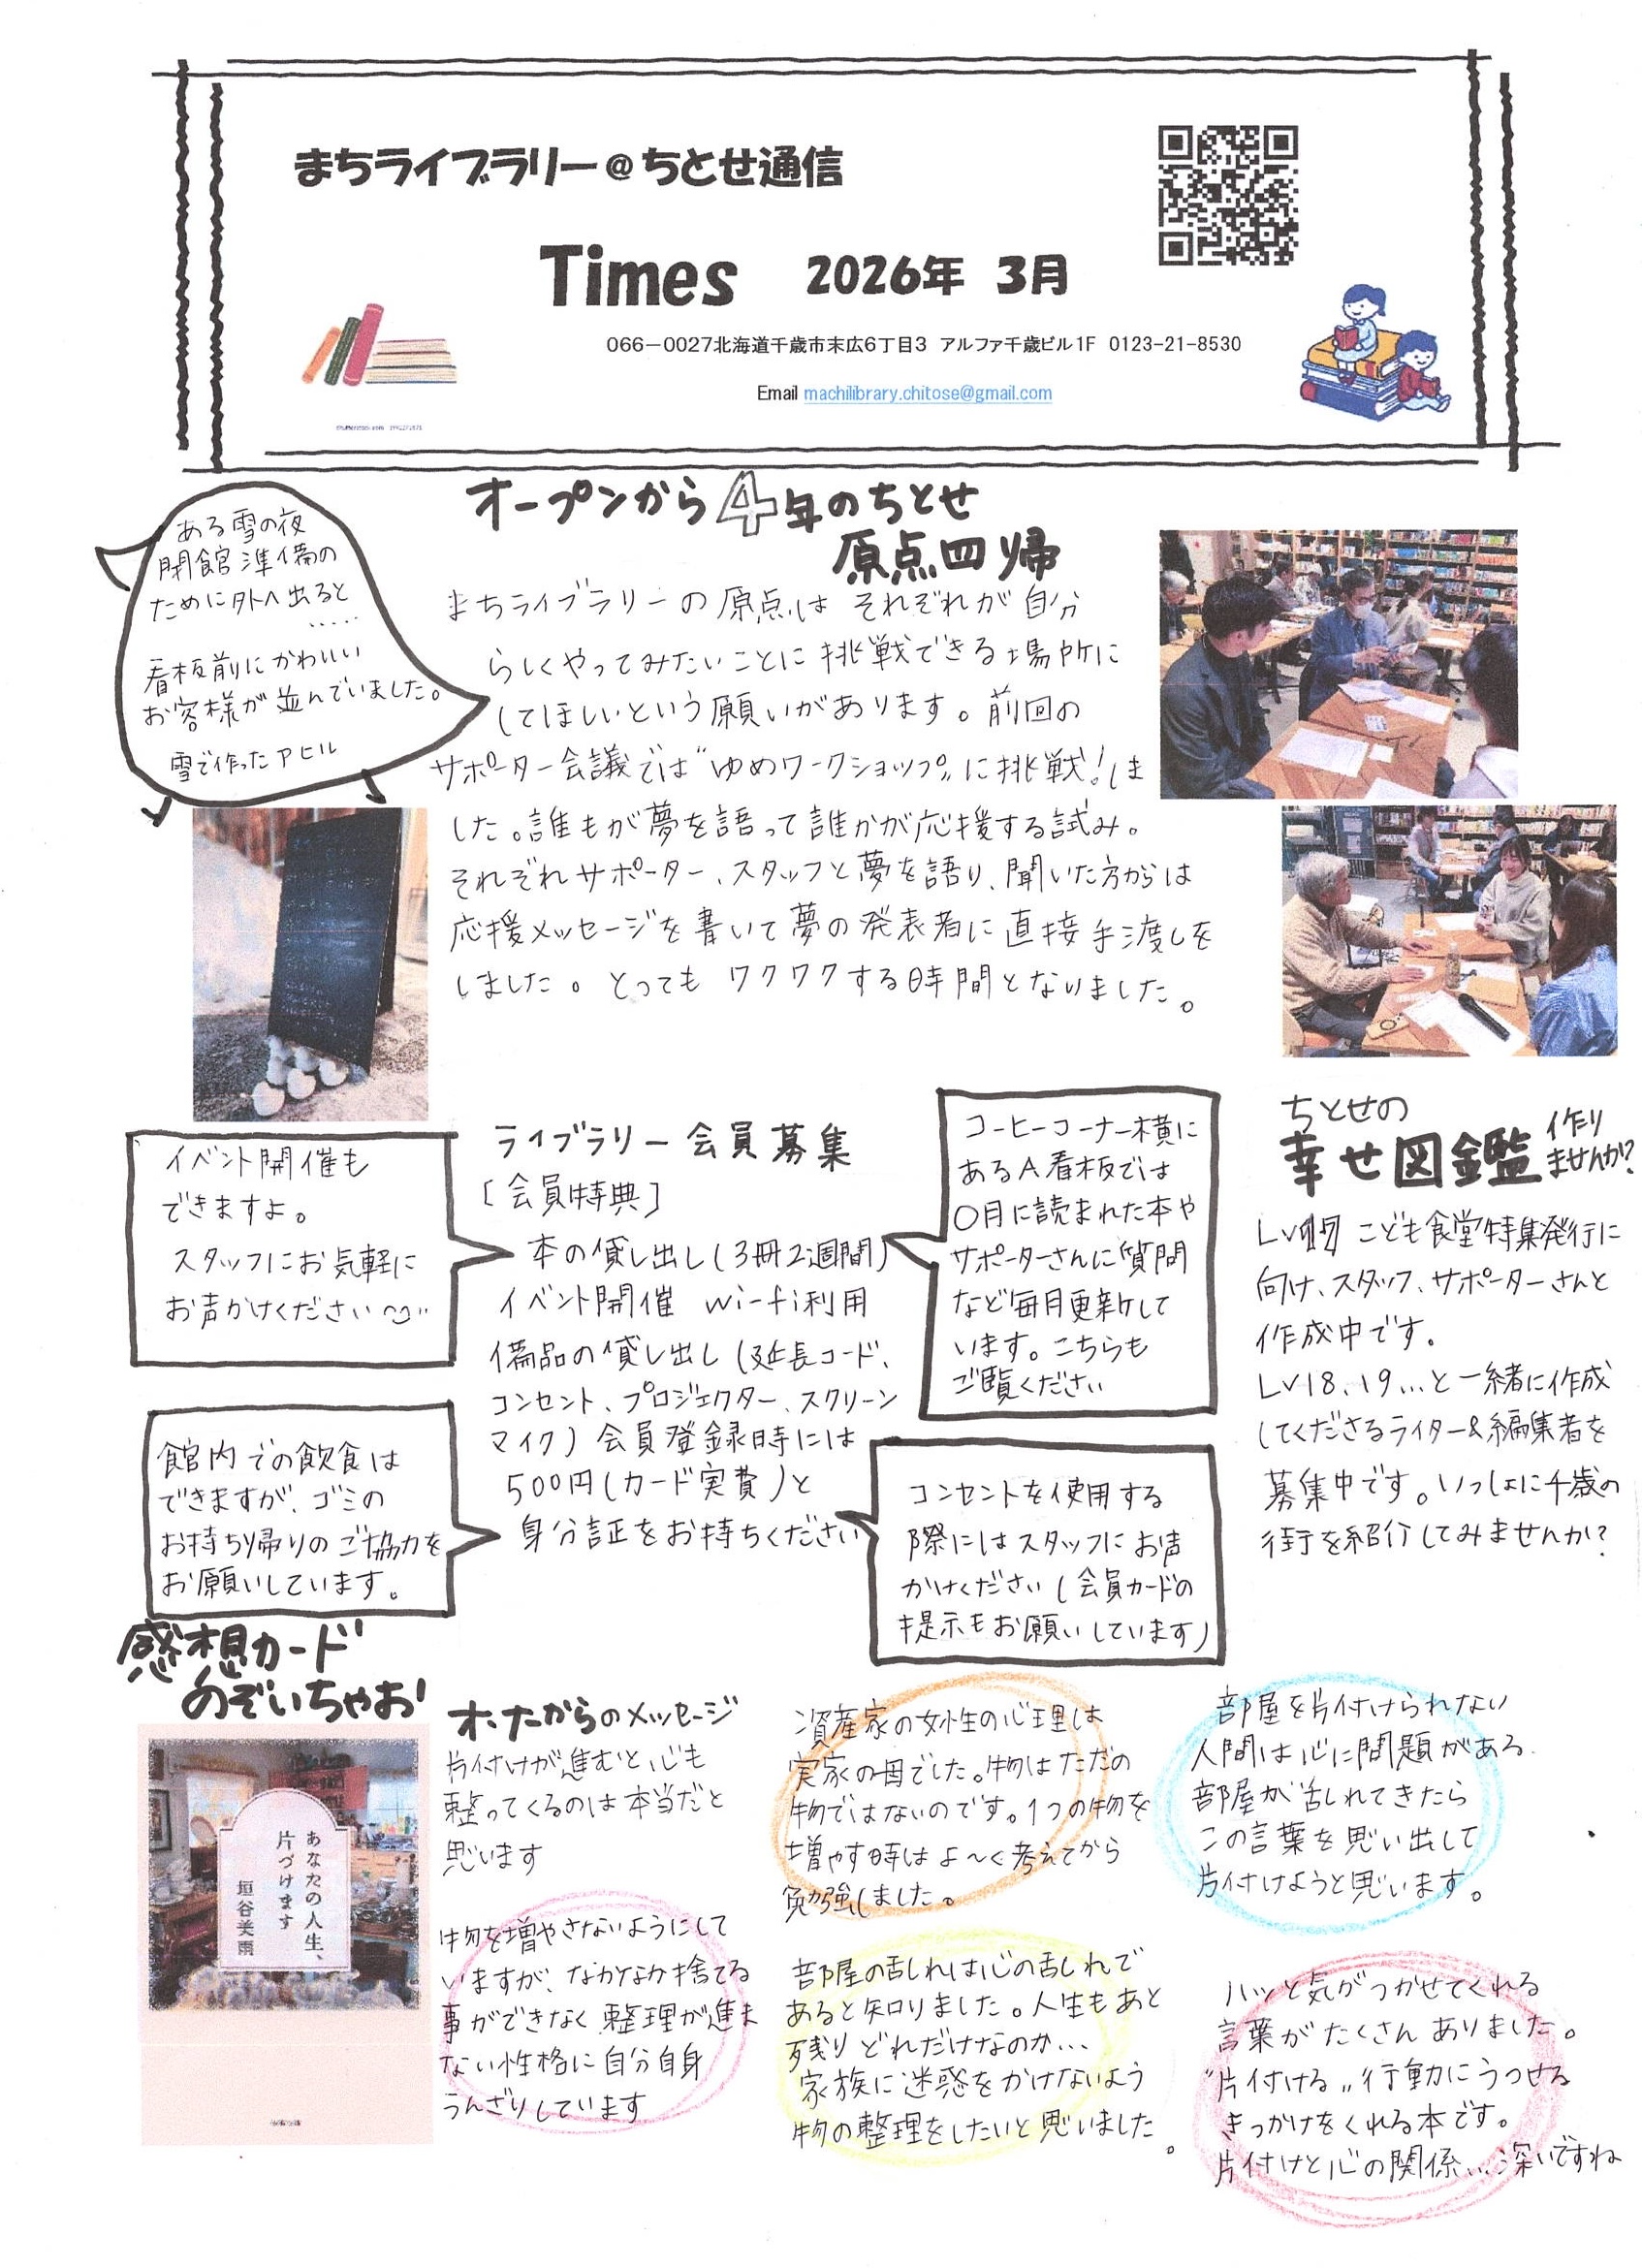 まちライブラリー@ちとせ通信
Times 2026年 3月
066-0027北海道千歳市末広6丁目3 アルファ千歳ビル1F 0123-21-8530
Email machilibrary.chitose@gmail.com
ある雪の夜
閉館準備の
ために外へ出ると
.....
看板前にかわいい
お客様が並んでいました。
雪で作ったアヒル
オープンから4年のちとせ
原点回帰
まちライブラリーの原点は それぞれが自分
らしくやってみたいことに挑戦できる場所に
してほしいという願いがあります。前回の
サポーター会議では〝ゆめワークショップ〟に挑戦!しま
した。誰もが夢を語って誰かが応援する試み。
それぞれサポーター、スタッフと夢を語り、聞いた方からは
応援メッセージを書いて夢の発表者に直接手渡しを
しました。とっても ワクワクする時間となりました。
イベント開催も
できますよ。
スタッフにお気軽に
お声かけください
館内での飲食は
できますが、ゴミの
お持ち帰りのご協力を
お願いしています。
ライブラリー会員募集
[会員特典]
本の貸し出し(3冊2週間)
イベント開催 wi-fi利用
備品の貸し出し(延長コード、
コンセント、プロジェクター、スクリーン
マイク)会員登録時には
500円(カード実費)と
身分証をお持ちください
コーヒーコーナー横に
あるA看板では
〇月に読まれた本や
サポーターさんに質問
など毎月更新して
います。こちらも
ご覧ください
コンセントを使用する
際にはスタッフにお声
かけください(会員カードの
提示もお願いしています)
ちとせの
幸せ図鑑 作り
ませんか?
Lv17 こども食堂特集発行に
向け、スタッフ、サポーターさんと
作成中です。
Lv18、19...と一緒に作成
してくださるライター&編集者を
募集中です。いっしょに千歳の
街を紹介してみませんか?
感想カード
のぞいちゃお!
あなたの人生、
片づけます
垣谷美雨
からのメッセージ
片付けが進むと心も
整ってくるのは本当だと
思います
物を増やさないようにして
いますが、なかなか捨てる
事ができなく整理が進ま
ない性格に自分自身
うんざりしています
資産家の女性の心理は
実家の母でした。物はただの
物ではないのです。1つの物を
増やす時はよ~く考えてから
勉強しました。
部屋の乱れは心の乱れで
あると知りました。人生もあと
残りどれだけなのか...
家族に迷惑をかけないよう
物の整理をしたいと思いました。
部屋を片付けられない
人間は心に問題がある。
部屋が乱れてきたら
この言葉を思い出して
片付けようと思います。
ハッと気がつかせてくれる
言葉がたくさんありました。
〝片付ける〟行動にうつせる
きっかけをくれる本です。
片付けと心の関係...深いですね